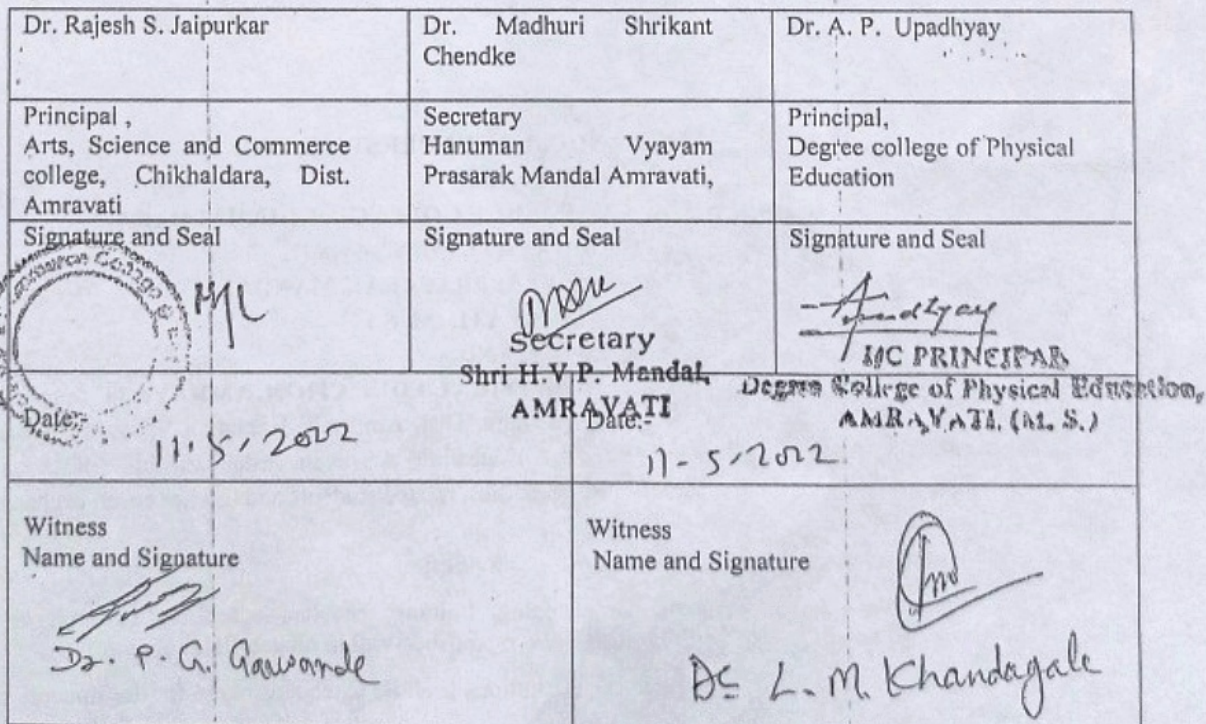 Dr. Rajesh S. Jaipurkar
Dr. Madhuri Shrikant
Chendke
Dr. A. P. Upadhyay
Principal ,
Arts, Science and Commerce
college, Chikhaldara, Dist.
Amravati
Secretary
Hanuman Vyayam
Prasarak Mandal Amravati,
Principal,
Degree college of Physical
Education
Signature and Seal
Signature and Seal
Signature and Seal
Secretary
Shri H.V.P. Mandal,
AMRAVATI
I/C PRINCIPAL
Degree College of Physical Education,
AMRAVATI. (M. S.)
Date:-
11-5-2022
Date:-
11-5-2022
Witness
Name and Signature
Dr. P. G. Gawande
Witness
Name and Signature
Dr L. M. Khandagale